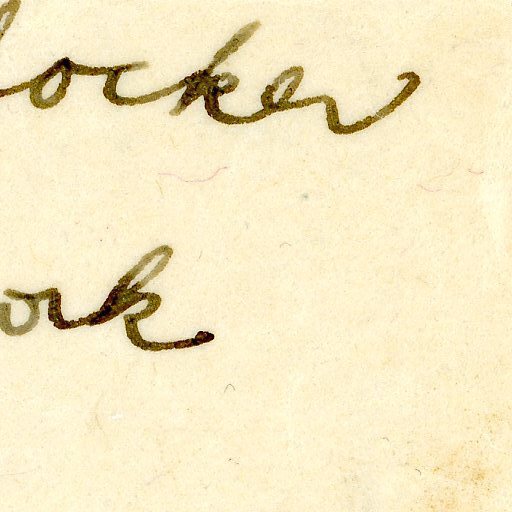 locker
ork